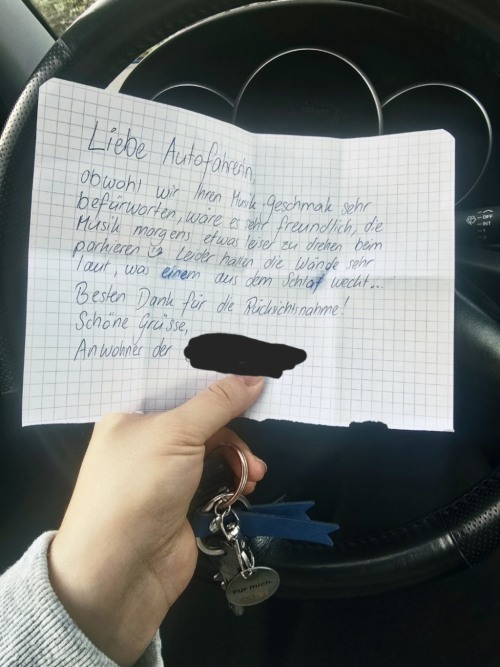 Liebe Autofahrerin,
obwohl wir Ihren Musik-Geschmak sehr
befürworten, wäre es sehr freundlich, die
Musik morgens etwas leiser zu drehen beim
parkieren Leider hallen die Wände sehr
laut, was einem aus dem Schlaf weckt...
Besten Dank für die Rücksichtsnahme!
Schöne Grüsse,
Anwohner der
OFF
INT
Für mich.